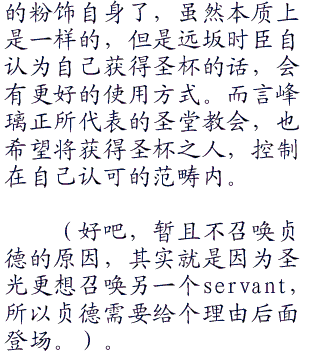 的粉饰自身了，虽然本质上
是一样的，但是远坂时臣自
认为自己获得圣杯的话，会
有更好的使用方式。而言峰
璃正所代表的圣堂教会，也
希望将获得圣杯之人，控制
在自己认可的范畴内。
（好吧，暂且不召唤贞
德的原因，其实就是因为圣
光更想召唤另一个servant，
所以贞德需要给个理由后面
登场。）。